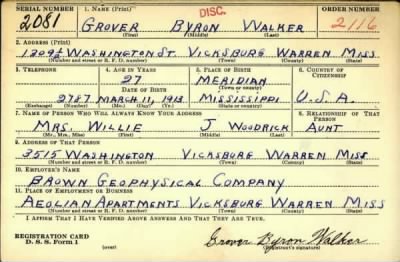 SERIAL NUMBER 1. NAME (Print) ORDER NUMBER
DISC.
2081 GROVER BYRON WALKER 2116
(First) (Middle) (Last)
2. ADDRESS (Print)
1209½ WASHINGTON ST. VICKSBURG WARREN MISS.
(Number and street or R. F. D. number) (Town) (County) (State)
3. TELEPHONE 4. AGE IN YEARS 5. PLACE OF BIRTH 6. COUNTRY OF CITIZENSHIP
27 MERIDIAN
DATE OF BIRTH (Town or county)
2787 MARCH 11, 1913 MISSISSIPPI U.S.A.
(Exchange) (Number) (Mo.) (Day) (Yr.) (State or country)
7. NAME OF PERSON WHO WILL ALWAYS KNOW YOUR ADDRESS 8. RELATIONSHIP OF THAT PERSON
MRS. WILLIE J WOODRICK AUNT
(Mr., Mrs., Miss) (First) (Middle) (Last)
9. ADDRESS OF THAT PERSON
3515 WASHINGTON VICKSBURG WARREN MISS
(Number and street or R. F. D. number) (Town) (County) (State)
10. EMPLOYER'S NAME
BROWN GEOPHYSICAL COMPANY
11. PLACE OF EMPLOYMENT OR BUSINESS
AEOLIAN APARTMENTS VICKSBURG WARREN MISS
(Number and street or R. F. D. number) (Town) (County) (State)
I AFFIRM THAT I HAVE VERIFIED ABOVE ANSWERS AND THAT THEY ARE TRUE.
REGISTRATION CARD
D. S. S. Form 1 (over) Grover Byron Walker
(Registrant's signature)